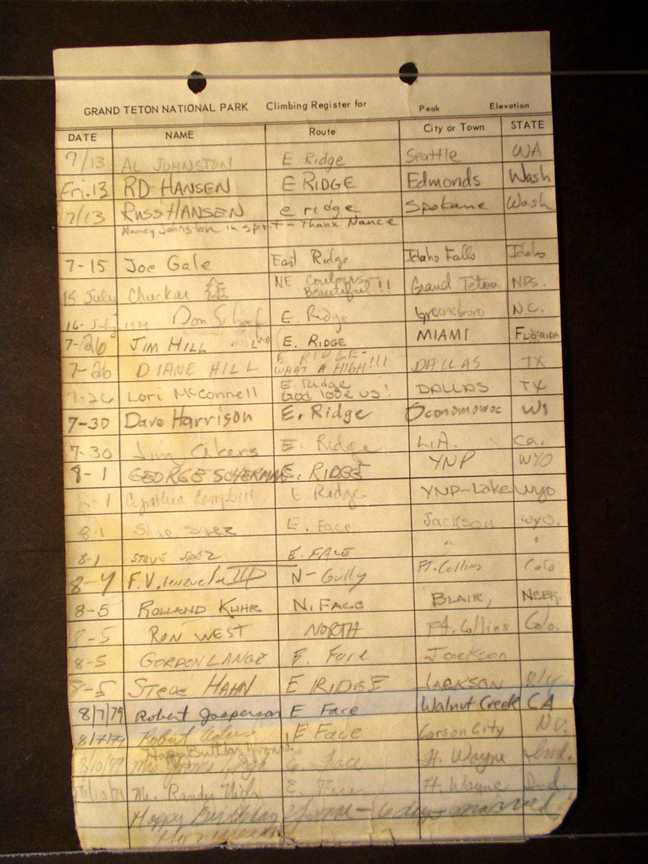 GRAND TETON NATIONAL PARK Climbing Register for Peak Elevation
DATE NAME Route City or Town STATE
7/13 AL JOHNSTON E Ridge Seattle WA
Fri. 13 RD HANSEN E RIDGE Edmonds Wash
7/13 RUSS HANSEN e ridge Spokane Wash
Nancy Johnston in spirit - Thank Nance
7-15 Joe Gale East Ridge Idaho Falls Idaho
15 July Chuckar NE Couloirs Beautiful!! Grand Teton NPS.
16-July 1979 Don E. Ridge Greensboro N.C.
7-26 JIM HILL E. RIDGE MIAMI FLORIDA
7-26 DIANE HILL E RIDGE! WHAT A HIGH!!! DALLAS TX
7-26 Lori McConnell E. Ridge God love us! DALLAS TX
7-30 Dave Harrison E. Ridge Oconomowoc WI
7-30 Jim Akers E. Ridge L.A. Ca.
8-1 GEORGE E. RIDGE YNP WYO
8-1 Cynthia Campbell E Ridge YNP-Lake Wyo
8-1 E. Face Jackson Wyo.
8-1 STEVE E. FACE " "
8-4 F.V. III N-Gully Ft. Collins Colo
8-5 ROLLAND KUHR N. FACE BLAIR, NEBR.
8-5 RON WEST NORTH Ft. Collins Colo.
8-5 GORDON LANGE E. Face Jackson
8-5 STEVE HAHN E RIDGE JACKSON
8/7/79 Robert Jasperson E Face Walnut Creek CA
8/7/79 Robert E Face Carson City NV.
Happy Birthday
8/10/79 Face Ft. Wayne Ind.
8/10/79 Mr. Randy E. Face Ft Wayne Ind.
Happy Birthday - 6 days married!